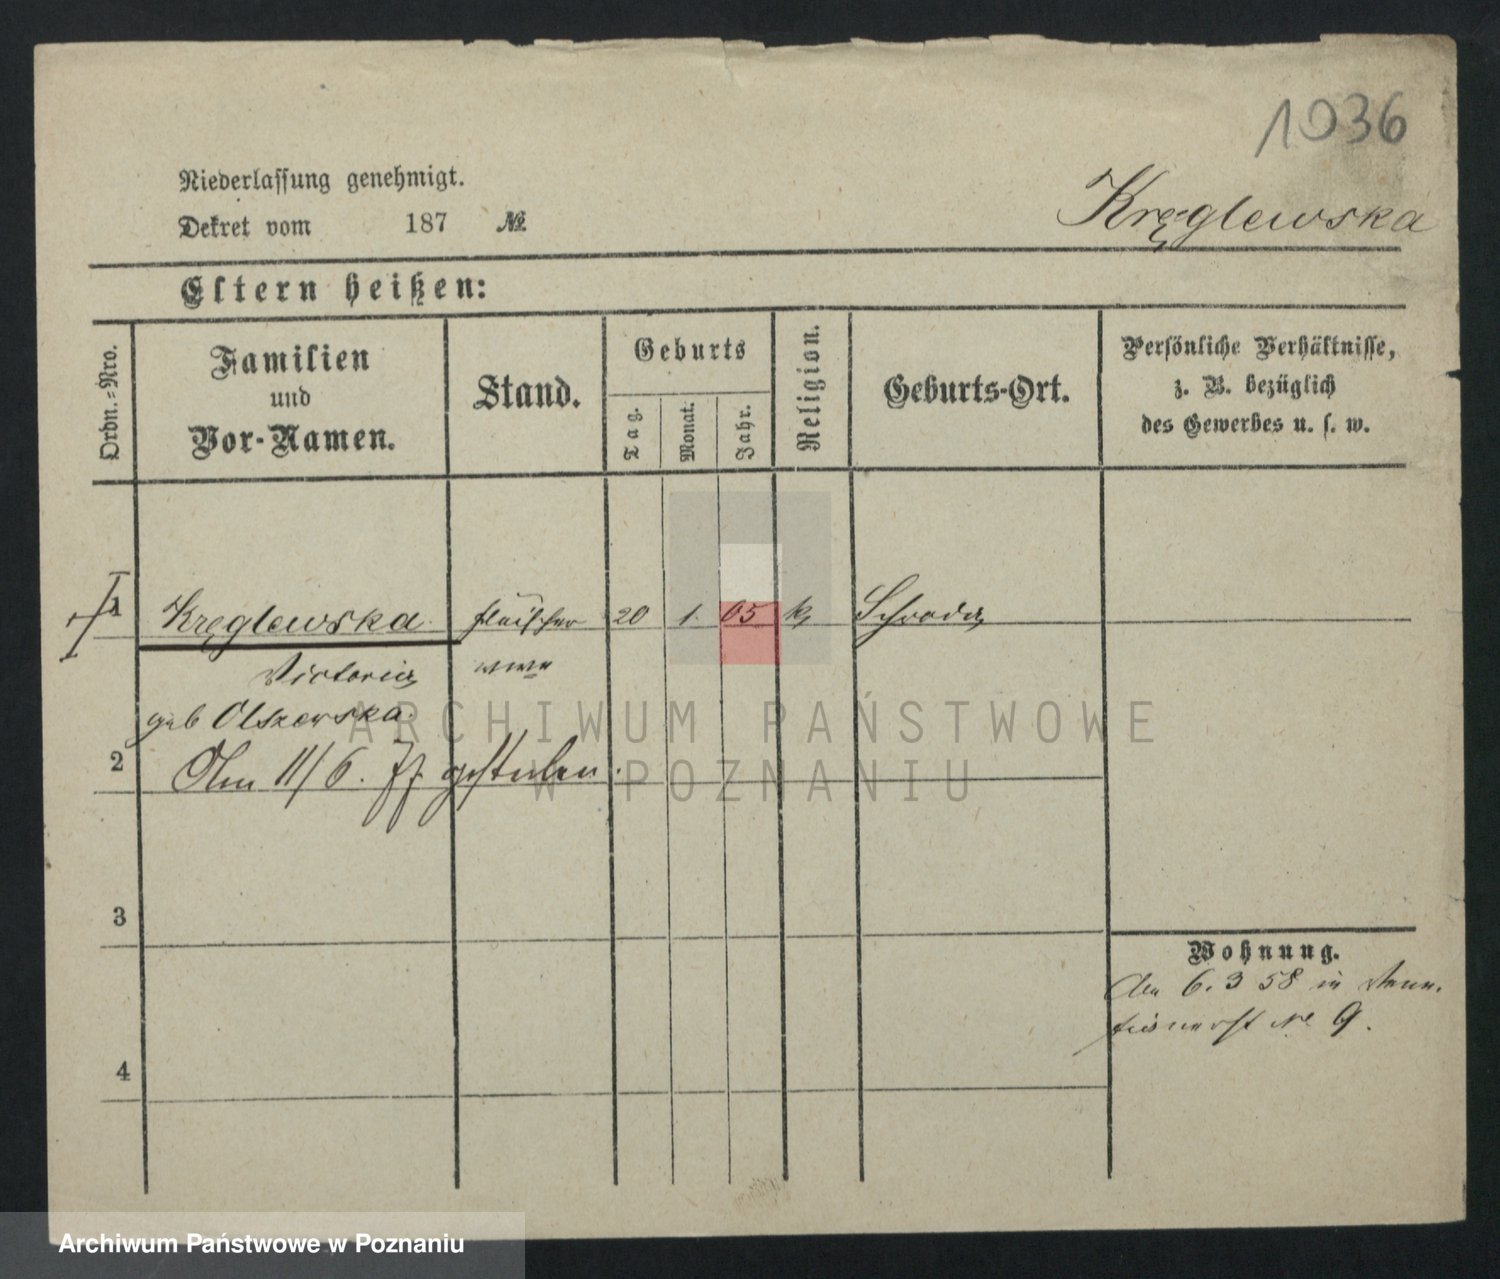 1036
Niederlassung genehmigt.
Dekret vom 187 №
Kręglewska
Eltern heißen:
Ordn.-Nro.
Familien
und
Vor-Namen.
Stand.
Geburts
Tag.
Monat.
Jahr.
Religion.
Geburts-Ort.
Persönliche Verhältnisse,
z. B. bezüglich
des Gewerbes u. s. w.
1 Kręglewska fleischer 20 1. 05 k Schroda
Victoria wwe
geb Olszewska
2 Am 11/6. 77 gestorben.
3
Wohnung.
6. 3 58 in
№ 9.
4
ARCHIWUM PAŃSTWOWE
W POZNANIU
Archiwum Państwowe w Poznaniu